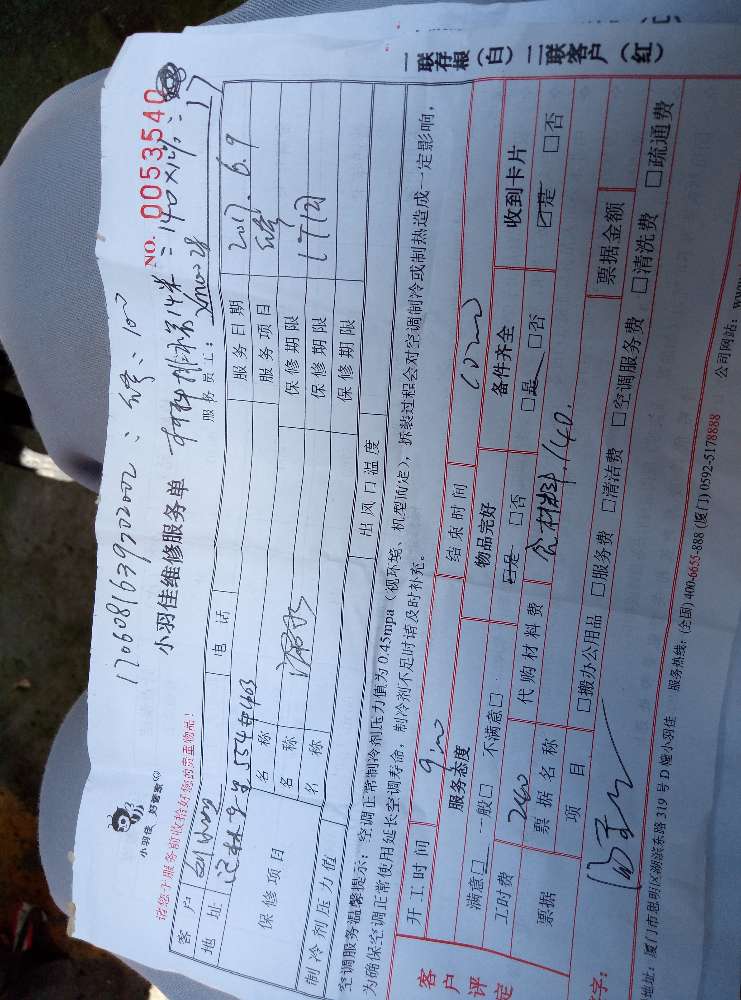 一联存根（白）二联客户（红）
1706081639702002
修：100
小羽佳 好管家
小羽佳维修服务单
NO. 0053540
材料排水管14米=140×12%=17
请您于服务前收拾好您的贵重物品！
服务员工：xm0028
客户
电话
服务日期 2017.6.9
地址
服务项目
保修项目
名称
保修期限 1个月
名称
保修期限
名称
保修期限
制冷剂压力值
出风口温度
空调服务温馨提示：空调正常制冷剂压力值为0.45mpa（视环境、机型而定），拆装过程会对空调制冷或制热造成一定影响，
为确保空调正常使用延长空调寿命，制冷剂不足时请及时补充。
开工时间 9:00
结束时间 10:00
客户评定
服务态度
物品完好
备件齐全
收到卡片
满意□ 一般□ 不满意□
□是 □否
□是 □否
□是 □否
工时费 240
代购材料费 含材料.140.
票据
票据名称
票据金额
项目
□搬办公用品 □服务费 □清洁费 □空调服务费 □清洗费 □疏通费
字：
地址：厦门市思明区湖滨东路319号D幢小羽佳
服务热线：(全国) 400-6655-888 (厦门) 0592-5178888
公司网站：www.